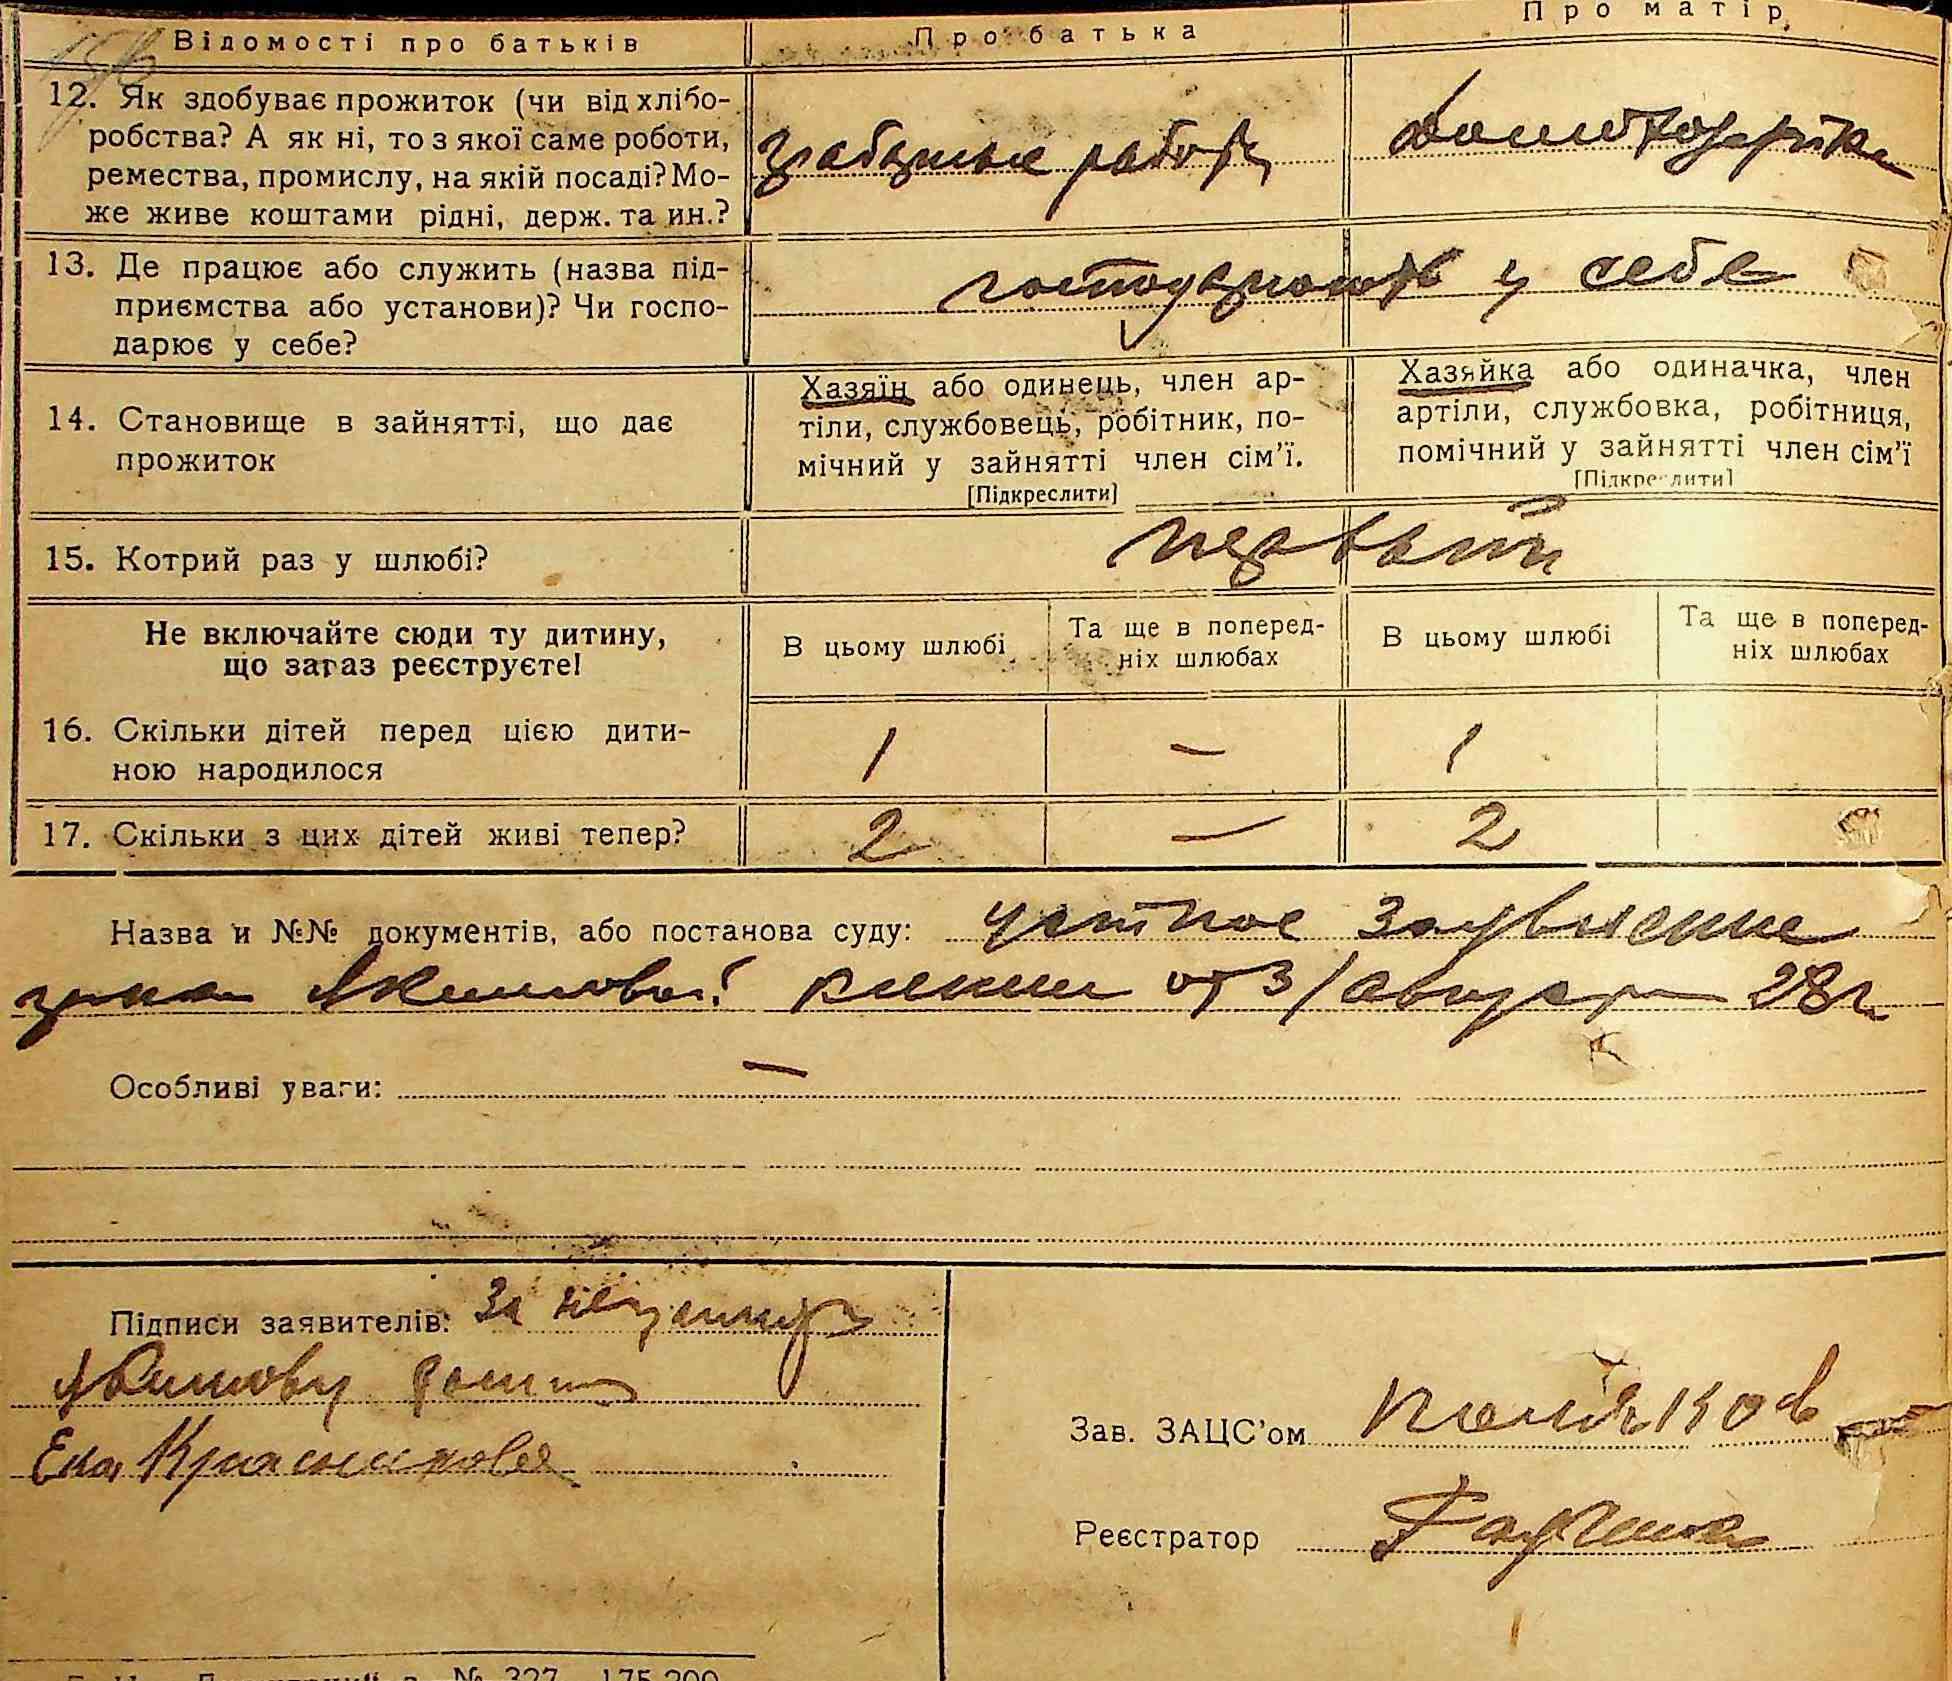 Відомості про батьків
Про батька
Про матір
12. Як здобуває прожиток (чи від хлібо-
робства? А як ні, то з якої саме роботи,
ремества, промислу, на якій посаді? Мо-
же живе коштами рідні, держ. та ин.?
работы
домохозяйка
13. Де працює або служить (назва під-
приємства або установи)? Чи госпо-
дарює у себе?
у себе
14. Становище в зайнятті, що дає
прожиток
Хазяїн або одинець, член ар-
тіли, службовець, робітник, по-
мічний у зайнятті член сім'ї.
[Підкреслити]
Хазяйка або одиначка, член
артіли, службовка, робітниця,
помічний у зайнятті член сім'ї
[Підкреслити]
15. Котрий раз у шлюбі?
первый
Не включайте сюди ту дитину,
що зараз реєструєте!
В цьому шлюбі
Та ще в поперед-
ніх шлюбах
В цьому шлюбі
Та ще в поперед-
ніх шлюбах
16. Скільки дітей перед цією дити-
ною народилося
1 — 1
17. Скільки з цих дітей живі тепер?
2 — 2
Назва и №№ документів, або постанова суду: устное заявление
Акимовой от 3/августа 28 г
Особливі уваги: —
Підписи заявителів: За неграмотн
Акимову
Ека Красникова
Зав. ЗАЦС'ом Поляков
Реєстратор
№ 327 175.200